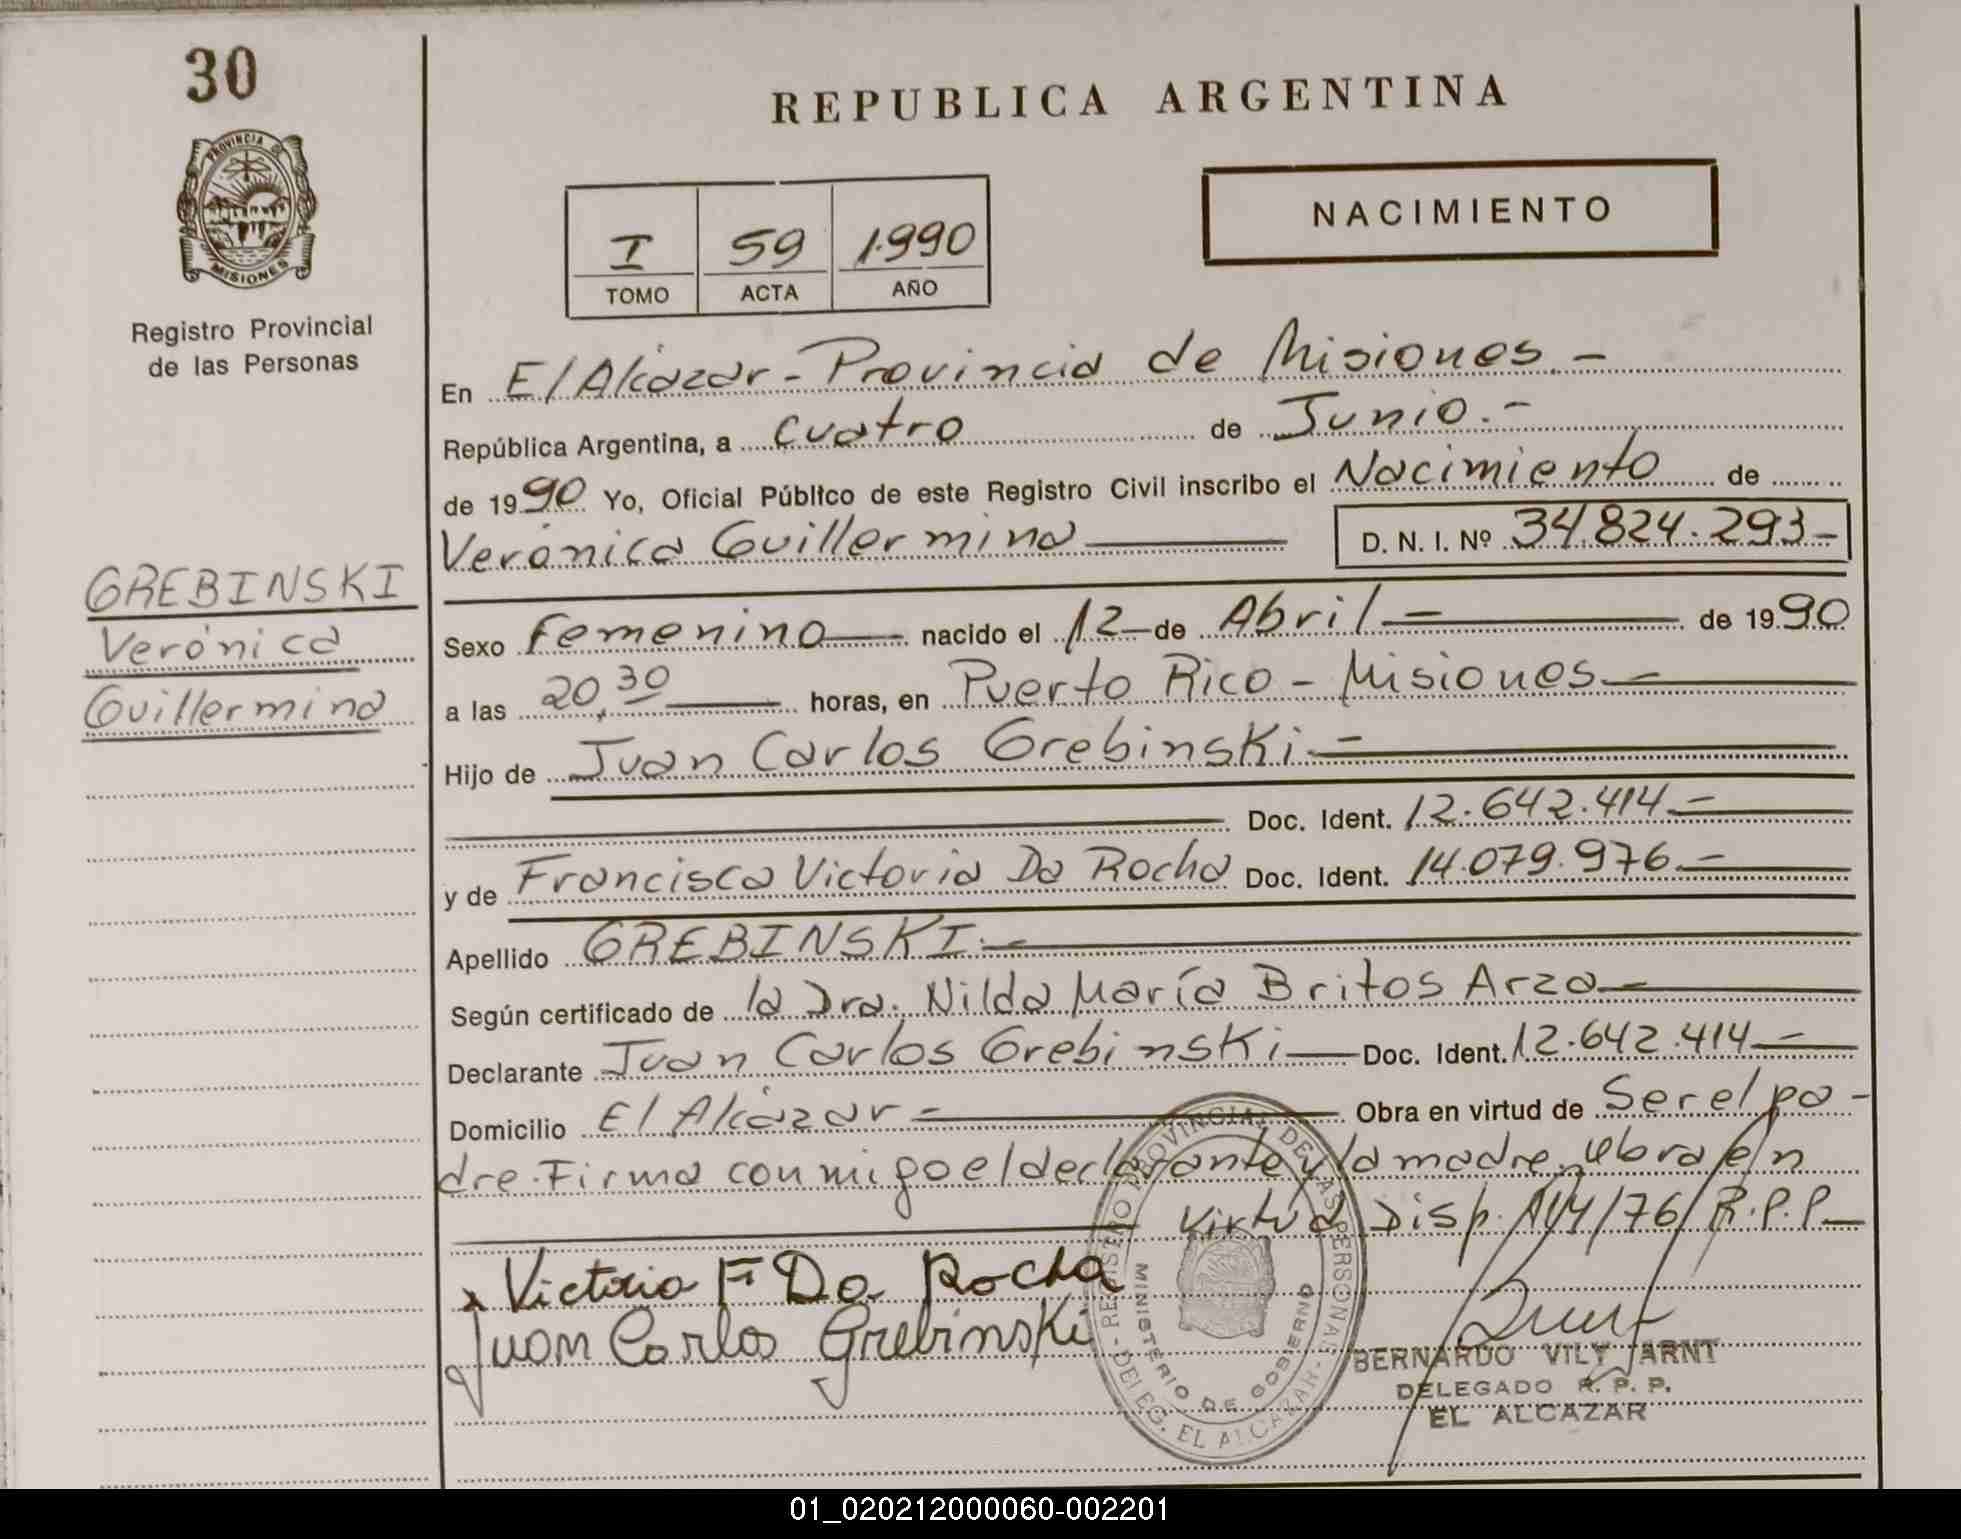 30
PROVINCIA DE
MISIONES
Registro Provincial
de las Personas
GREBINSKI
Verónica
Guillermina
REPUBLICA ARGENTINA
NACIMIENTO
I 59 1.990
TOMO ACTA AÑO
En El Alcázar - Provincia de Misiones.-
República Argentina, a cuatro de Junio.-
de 1990 Yo, Oficial Público de este Registro Civil inscribo el Nacimiento de
Verónica Guillermina D. N. I. Nº 34.824.293-
Sexo Femenino nacido el 12 de Abril - de 1990
a las 20,30 horas, en Puerto Rico - Misiones -
Hijo de Juan Carlos Grebinski.-
Doc. Ident. 12.642.414.-
y de Francisca Victoria Da Rocha Doc. Ident. 14.079.976.-
Apellido GREBINSKI.-
Según certificado de la Dra. Nilda María Britos Arza -
Declarante Juan Carlos Grebinski - Doc. Ident. 12.642.414 -
Domicilio El Alcázar - Obra en virtud de Ser el pa-
dre. Firma conmigo el declarante y la madre, obra en
Virtud Disp. /76/ R.P.P.
x Victoria F Da Rocha
Juan Carlos Grebinski
REGISTRO PROVINCIAL DE LAS PERSONAS
MINISTERIO DE GOBIERNO
DELEG. EL ALCAZAR
BERNARDO VILY ARNT
DELEGADO R. P. P.
EL ALCAZAR
01_020212000060-002201